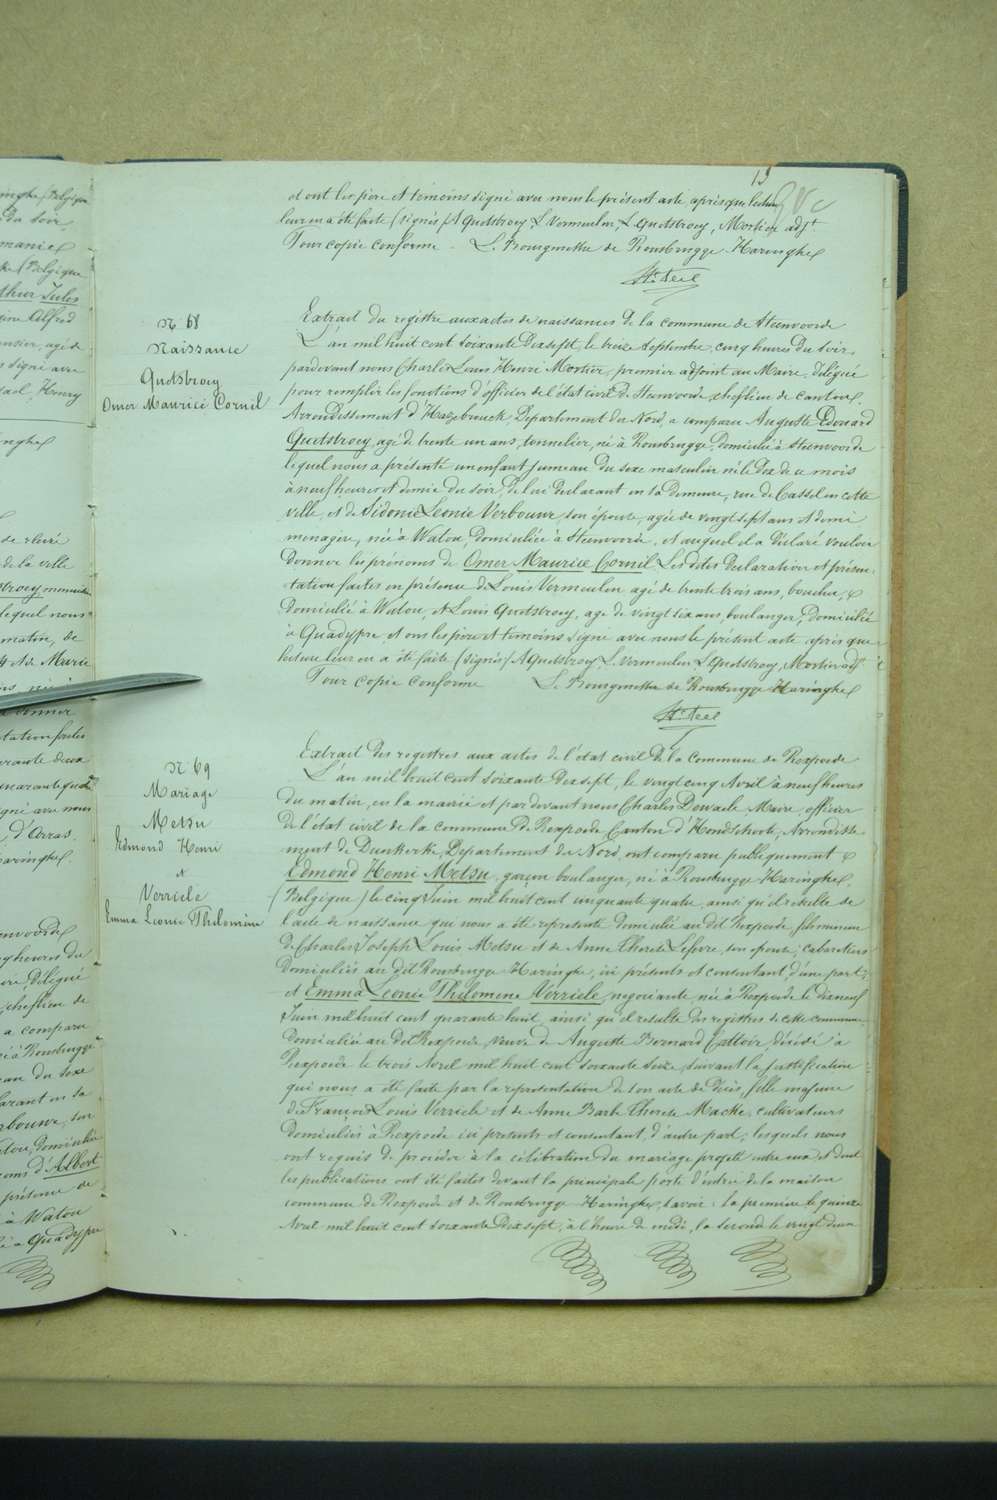 13
et ont les père et témoins signé avec nous le présent acte après que lecture
leur en a été faite (signés) A Quetstroey, L. Vermeulen, L. Quetstroey, Mortier adjt.
Pour copie conforme - L. Bourgmestre de Rousbrugge-Haringhe
H. Teel
N° 68
Naissance
Quetstroey
Omer Maurice Cornil
Extrait du registre aux actes de naissances de la commune de Steenvoorde
L'an mil huit cent soixante dix sept, le treize Septembre, cinq heures du soir,
pardevant nous Charles Louis Henri Mortier, premier adjoint au Maire, délégué
pour remplir les fonctions d'officier de l'état civil de Steenvoorde chef lieu de canton,
Arrondissement d'Hazebrouck, Département du Nord, a comparu Auguste Edouard
Quetstroey, agé de trente un ans, tonnelier, né à Rousbrugge, domicilié à Steenvoorde
lequel nous a présenté un enfant jumeau du sexe masculin né le dix de ce mois
à neuf heures et demie du soir, de lui déclarant en sa demeure, rue de Cassel en cette
ville, et de Sidonie Léonie Verbouwe, son épouse, agée de vingt sept ans et demi
ménagère, née à Watou, domiciliée à Steenvoorde, et auquel il a déclaré vouloir
donner les prénoms de Omer Maurice Cornil Les dites déclaration et présen-
tation faites en présence de Louis Vermeulen agé de trente trois ans, boucher,
domicilié à Watou, et Louis Quetstroey, agé de vingt six ans, boulanger, domicilié
à Quadypre, et ont les père et témoins signé avec nous le présent acte après que
lecture leur en a été faite (signés) A Quetstroey L. Vermeulen L Quetstroey, Mortier adjt
Pour copie conforme L. Bourgmestre de Rousbrugge-Haringhe
H. Teel
N° 69
Mariage
Metsu
Edmond Henri
et
Verriele
Emma Leonie Philomène
Extrait des registres aux actes de l'état civil de la Commune de Rexpoede
L'an mil huit cent soixante dix sept, le vingt cinq Avril à neuf heures
du matin, en la mairie et par devant nous Charles Dewaele Maire, officier
de l'état civil de la commune de Rexpoede Canton d'Hondschoote, Arrondisse-
ment de Dunkerke, Departement du Nord, ont comparu publiquement
Edmond Henri Metsu, garçon boulanger, né à Rousbrugge Haringhe,
(Belgique) le cinq Juin mil huit cent cinquante quatre, ainsi qu'il résulte de
l'acte de naissance qui nous a été représenté domicilié au dit Rexpoede, fils mineur
de Charles Joseph Louis Metsu et de Anne Thérèse Lefere, son épouse, cabaretiers
domiciliés au dit Rousbrugge Haringhe, ici présents et consentant, d'une part;
et Emma Leonie Philomène Verriele, négociante, née à Rexpoede le dix neuf
Juin mil huit cent quarante huit, ainsi qu'il résulte des registres de cette commune
domiciliée au dit Rexpoede, veuve de Auguste Bernard Cattoir, décédé à
Rexpoede le trois Avril mil huit cent soixante seize, suivant la justification
qui nous a été faite par la représentation de son acte de décès, fille majeure
de François Louis Verriele et de Anne Barbe Thérèse Macke, cultivateurs
domiciliés à Rexpoede ici présents et consentant, d'autre part; lesquels nous
ont requis de procéder à la célébration du mariage projeté entre eux et dont
les publications ont été faites devant la principale porte d'entrée de la maison
commune de Rexpoede et de Rousbrugge Haringhe, savoir: la première le quinze
Avril mil huit cent soixante dix sept, à l'heure de midi, la seconde le vingt deux